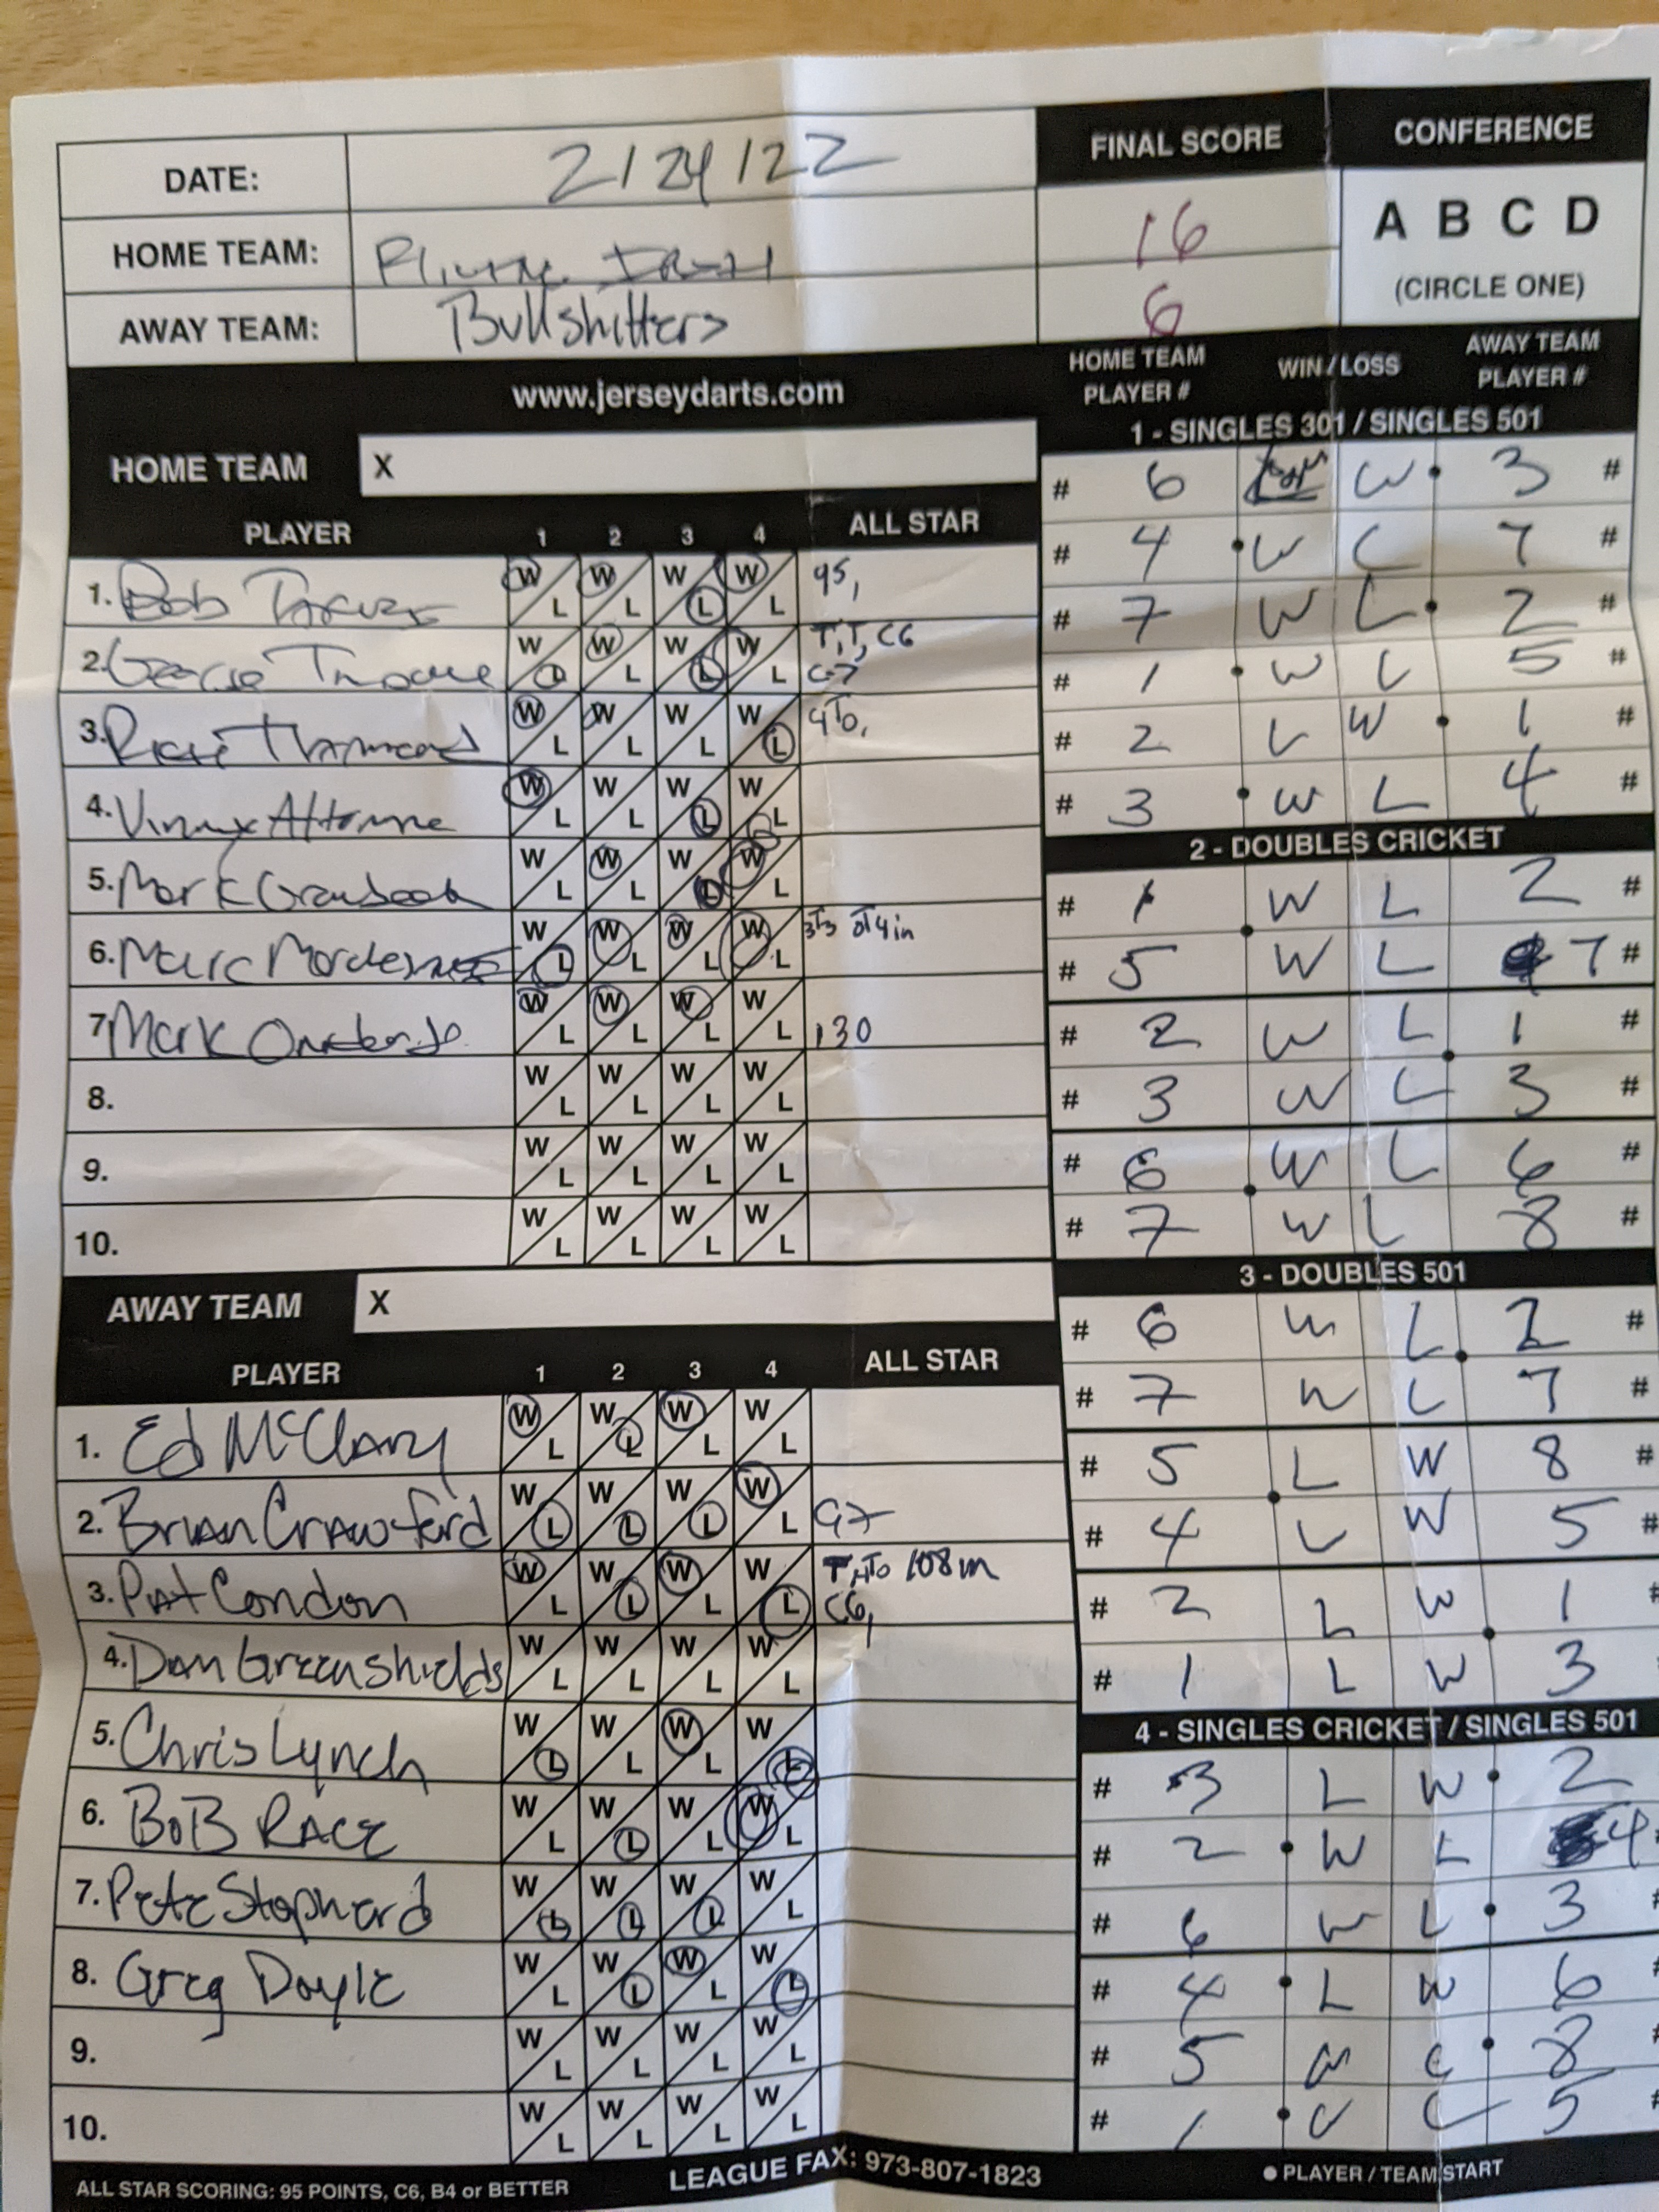 DATE: 2/24/22
FINAL SCORE
CONFERENCE
HOME TEAM:
16
A B C D
(CIRCLE ONE)
AWAY TEAM: Bullshitters
6
www.jerseydarts.com
HOME TEAM PLAYER #
WIN / LOSS
AWAY TEAM PLAYER #
HOME TEAM X
PLAYER 1 2 3 4 ALL STAR
1. Bob W L W L W L W L 95,
2. George W L W L W L W L T, T, C6
C7
3. W L W L W L W L
4. W L W L W L W L
5. Mark W L W L W L W L
6. Marc W L W L W L W L
7. Mark W L W L W L W L 130
8. W L W L W L W L
9. W L W L W L W L
10. W L W L W L W L
AWAY TEAM X
PLAYER 1 2 3 4 ALL STAR
1. Ed McClary W L W L W L W L
2. Brian Crawford W L W L W L W L
3. Pat Condon W L W L W L W L 108 in
C6,
4. Dan Greenshields W L W L W L W L
5. Chris Lynch W L W L W L W L
6. BoB RACE W L W L W L W L
7. Pete Stophard W L W L W L W L
8. Greg Doyle W L W L W L W L
9. W L W L W L W L
10. W L W L W L W L
ALL STAR SCORING: 95 POINTS, C6, B4 or BETTER
LEAGUE FAX: 973-807-1823
1 - SINGLES 301 / SINGLES 501
# 6 W 3 #
# 4 W L 7 #
# 7 W L 2 #
# 1 W L 5 #
# 2 L W 1 #
# 3 W L 4 #
2 - DOUBLES CRICKET
# 1 W L 2 #
# 5 W L 7 #
# 2 W L 1 #
# 3 W L 3 #
# 6 W L 6 #
# 7 W L 8 #
3 - DOUBLES 501
# 6 W L 2 #
# 7 W L 7 #
# 5 L W 8 #
# 4 L W 5 #
# 2 L W 1 #
# 1 L W 3
4 - SINGLES CRICKET / SINGLES 501
# 3 L W 2 #
# 2 W L 4 #
# 6 W L 3 #
# 4 L W 6 #
# 5 W L 8 #
# 1 W L 5 #
PLAYER / TEAM START